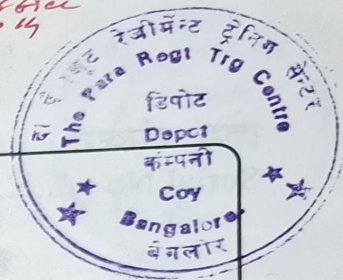 रेजीमेंट ट्रेनिंग सेन्टर
The Para Regt Trg Centre
डिपोट
Depot
कंपनी
Coy
Bangalore
बेंगलोर